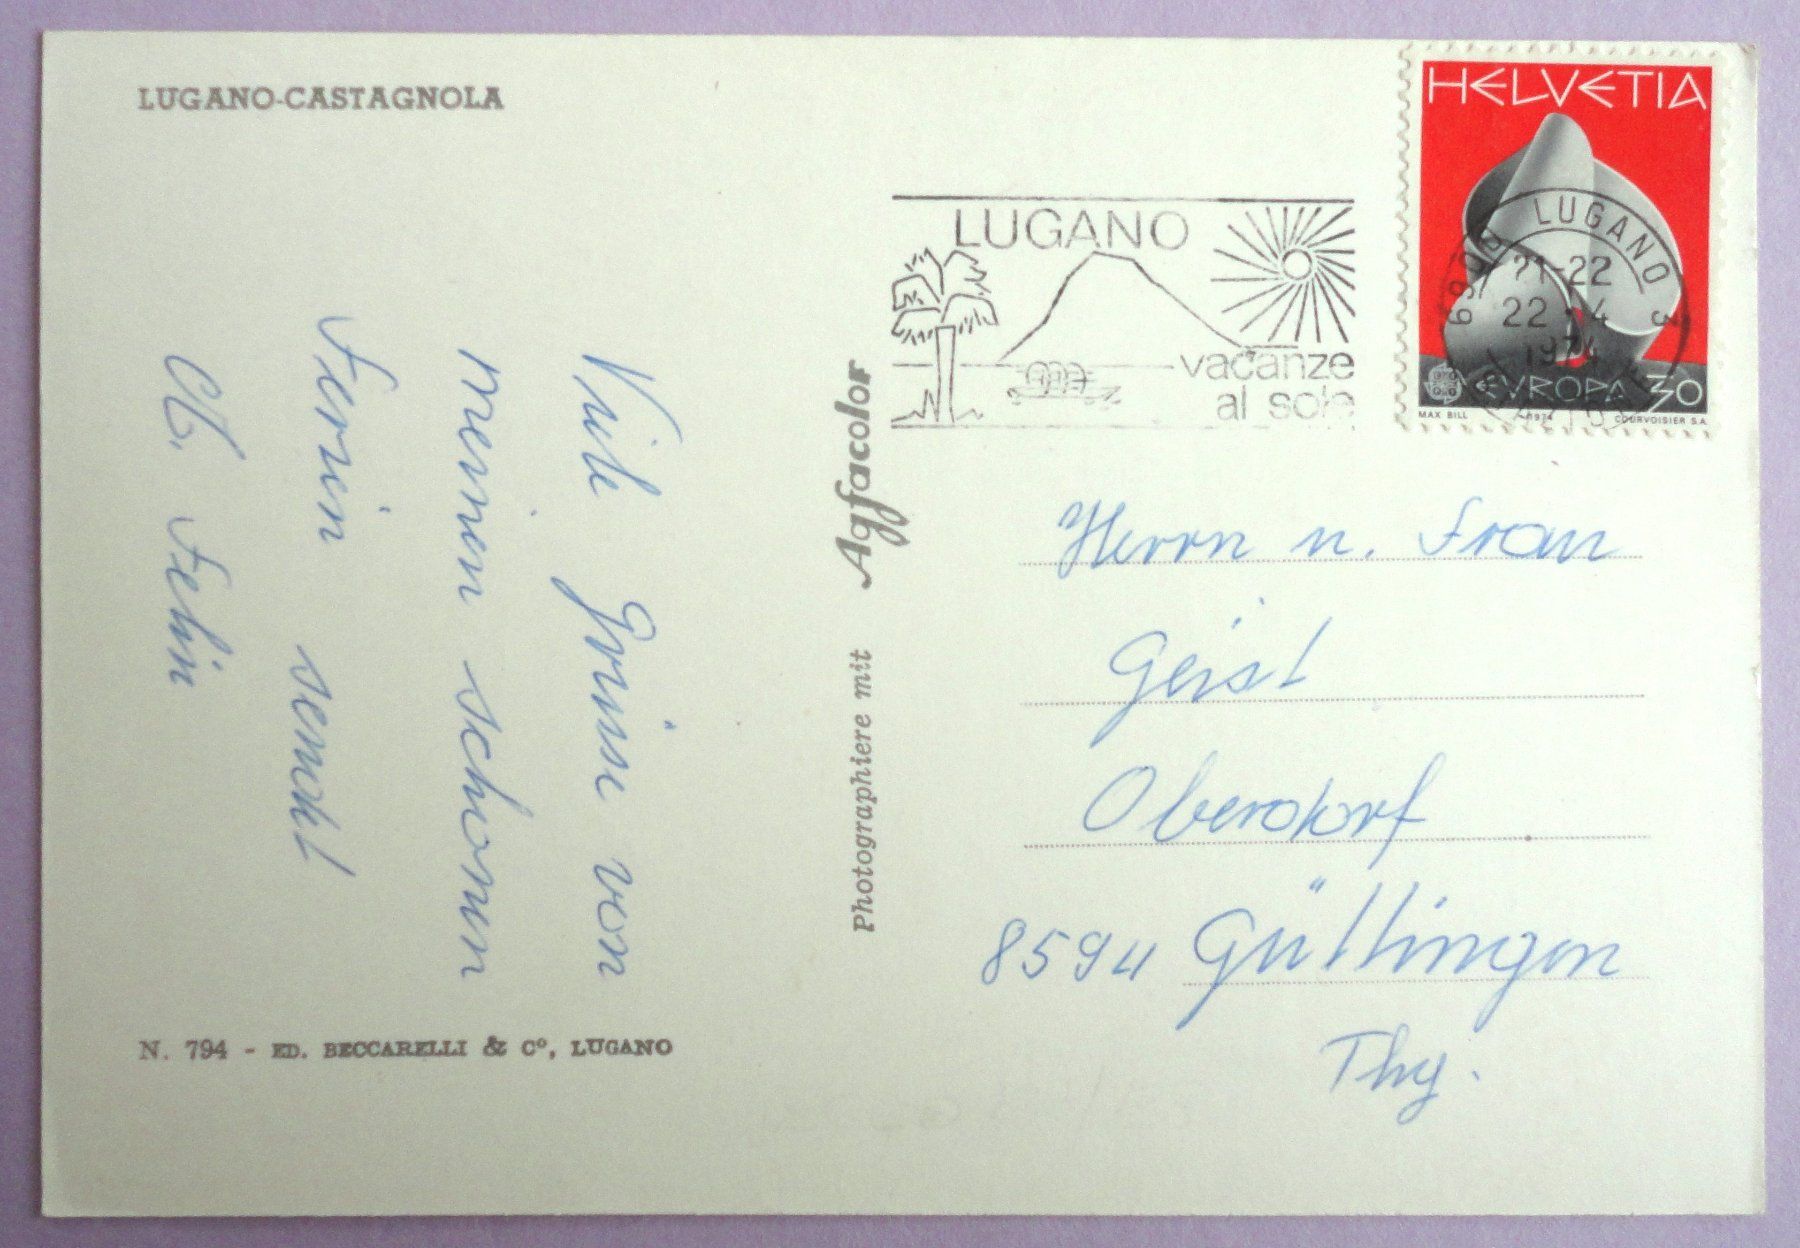 LUGANO-CASTAGNOLA
Viele Grüsse von
meinen schönen
Ferien sendet
Felin
N. 794 - ED. BECCARELLI & Cº, LUGANO
Photographiere mit Agfacolor
LUGANO
vacanze
al sole
HELVETIA
LUGANO 3
21-22
22.-4
1974
EUROPA 30
MAX BILL 1974 COURVOISIER S.A.
Herrn u. Frau
Geist
Oberdorf
8594 Güttingen
Thg.